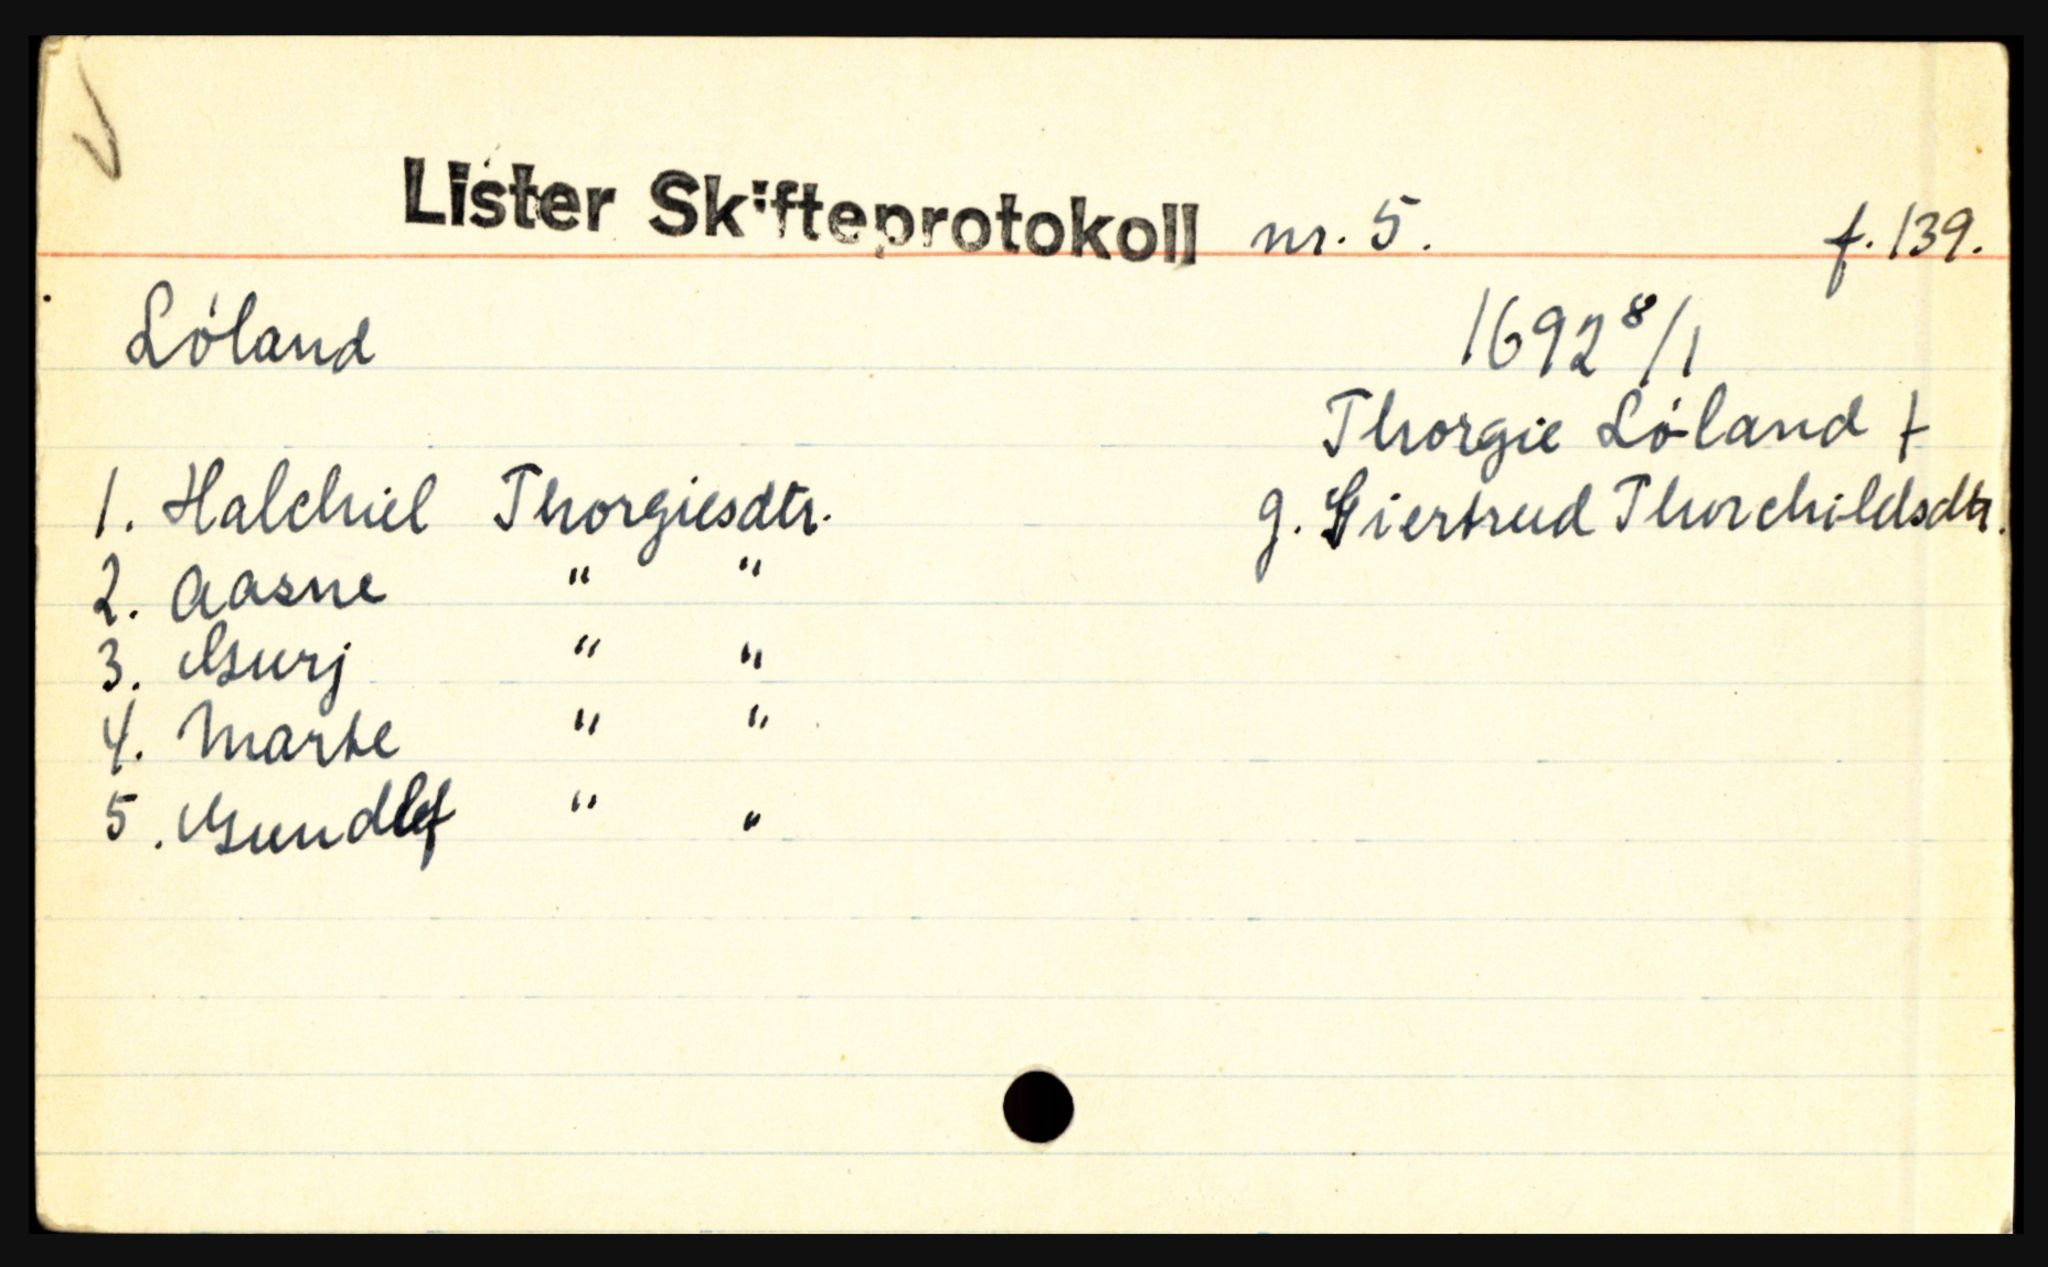 Lister Skifteprotokoll nr. 5. f. 139.
Lóland 1692 8/1
Thorgie Lóland †
1. Halchiel Thorgiesdtr. g. Giertrud Thorchildsdtr.
2. Aasne " "
3. Gurj " "
4. Marte " "
5. Gundlef " "